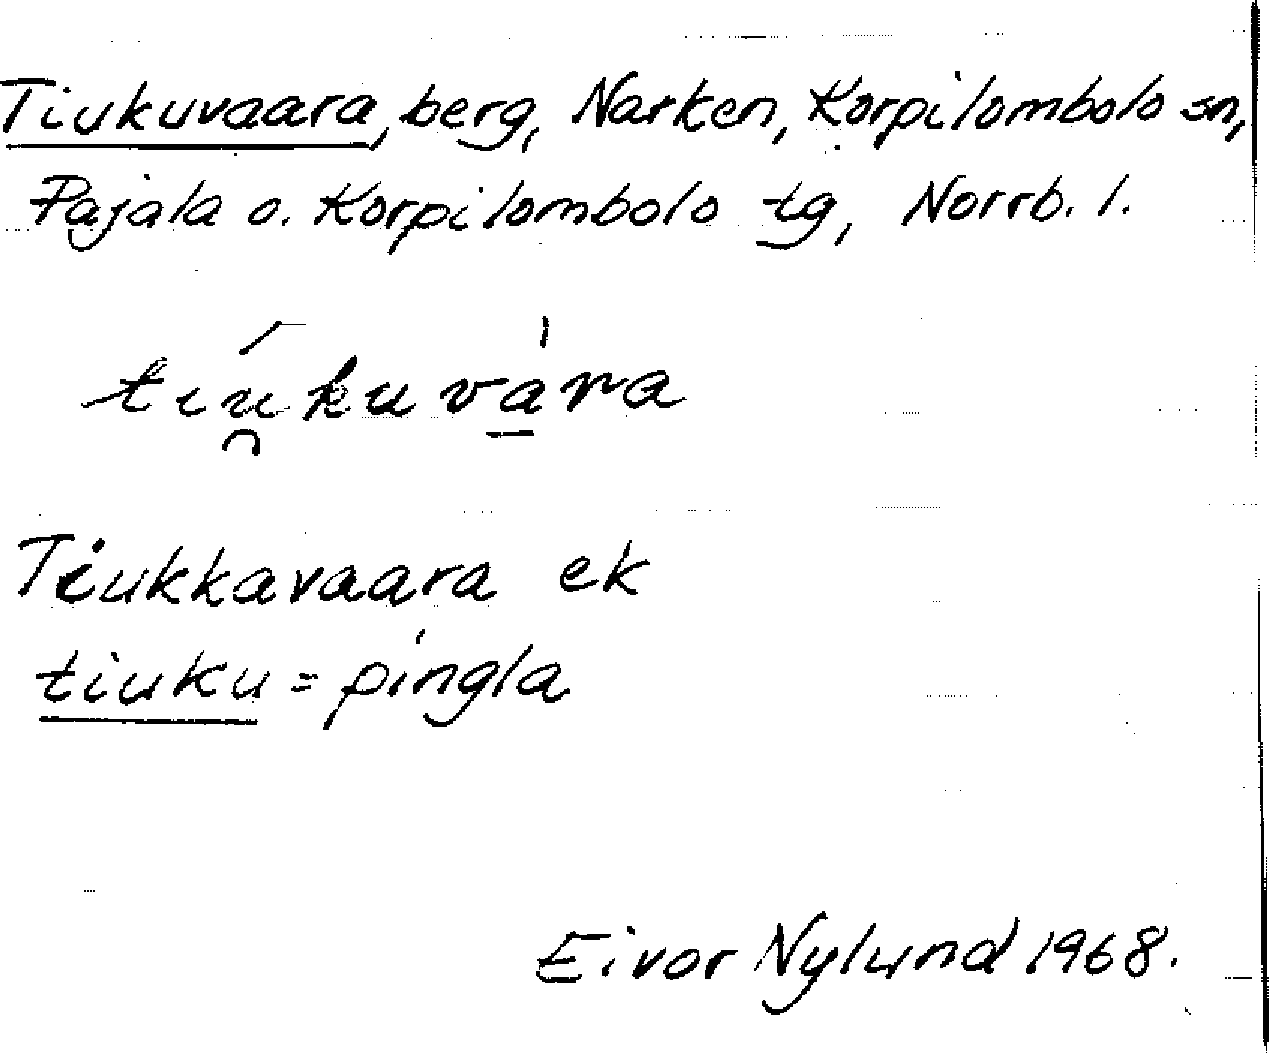 Tiukuvaara, berg, Narken, Korpilombolo sn,
Pajala o. Korpilombolo tg, Norrb. l.
tıú̯kuvа̱̍ra
Tiukkavaara ek
tiuku = pingla
Eivor Nylund 1968.